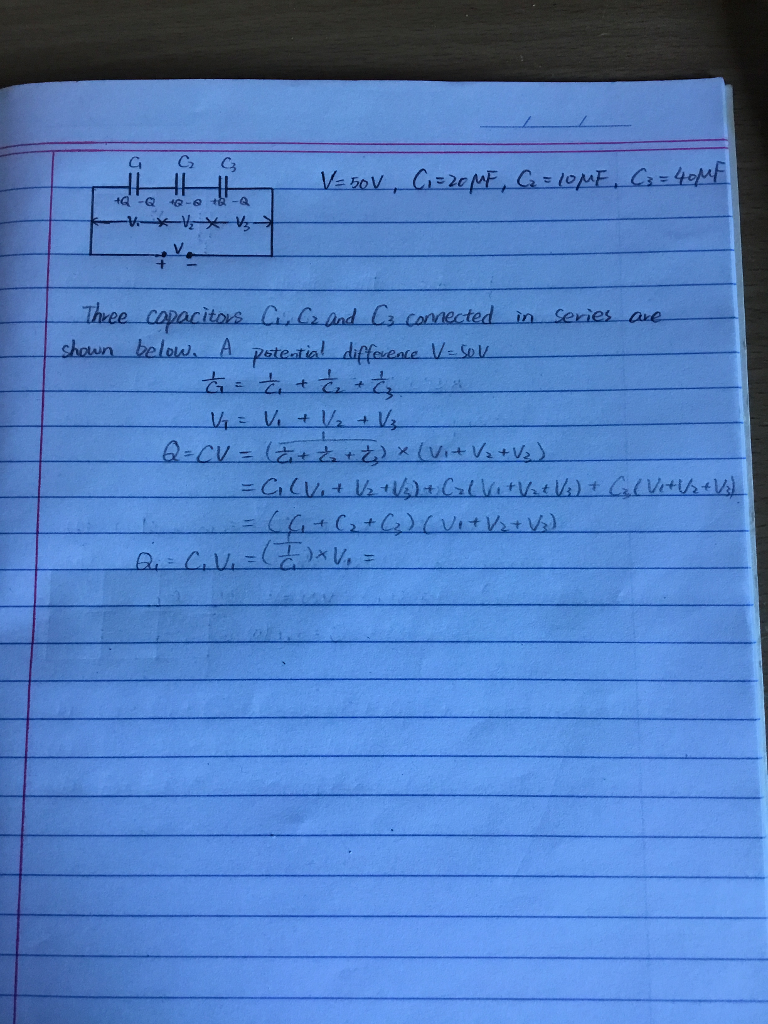 C₁ C₂ C₃
V=50V, C₁=20μF, C₂=10μF, C₃=40μF
+Q -Q +Q -Q +Q -Q
V₁ V₂ V₃
V
+ -
Three capacitors C₁, C₂ and C₃ connected in series are
shown below. A potential difference V=50V
1/C_T = 1/C₁ + 1/C₂ + 1/C₃
V_T = V₁ + V₂ + V₃
Q=CV = (1/(1/C₁ + 1/C₂ + 1/C₃)) × (V₁+V₂+V₃)
= C₁(V₁+V₂+V₃)+C₂(V₁+V₂+V₃)+C₃(V₁+V₂+V₃)
= (C₁+C₂+C₃)(V₁+V₂+V₃)
Q₁ = C₁V₁ = (1/(1/C₁))×V₁ =